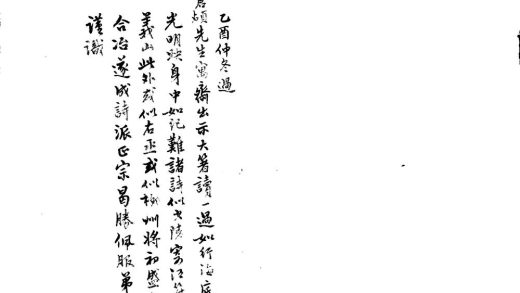 乙酉仲冬過
先生寓齋出示大箸讀一過如行海底
光明映身中如記難諸詩似少陵寄江
義山此外或似右丞或似柳州將初盛
合冶遂成詩派正宗曷勝佩服弟
謹識